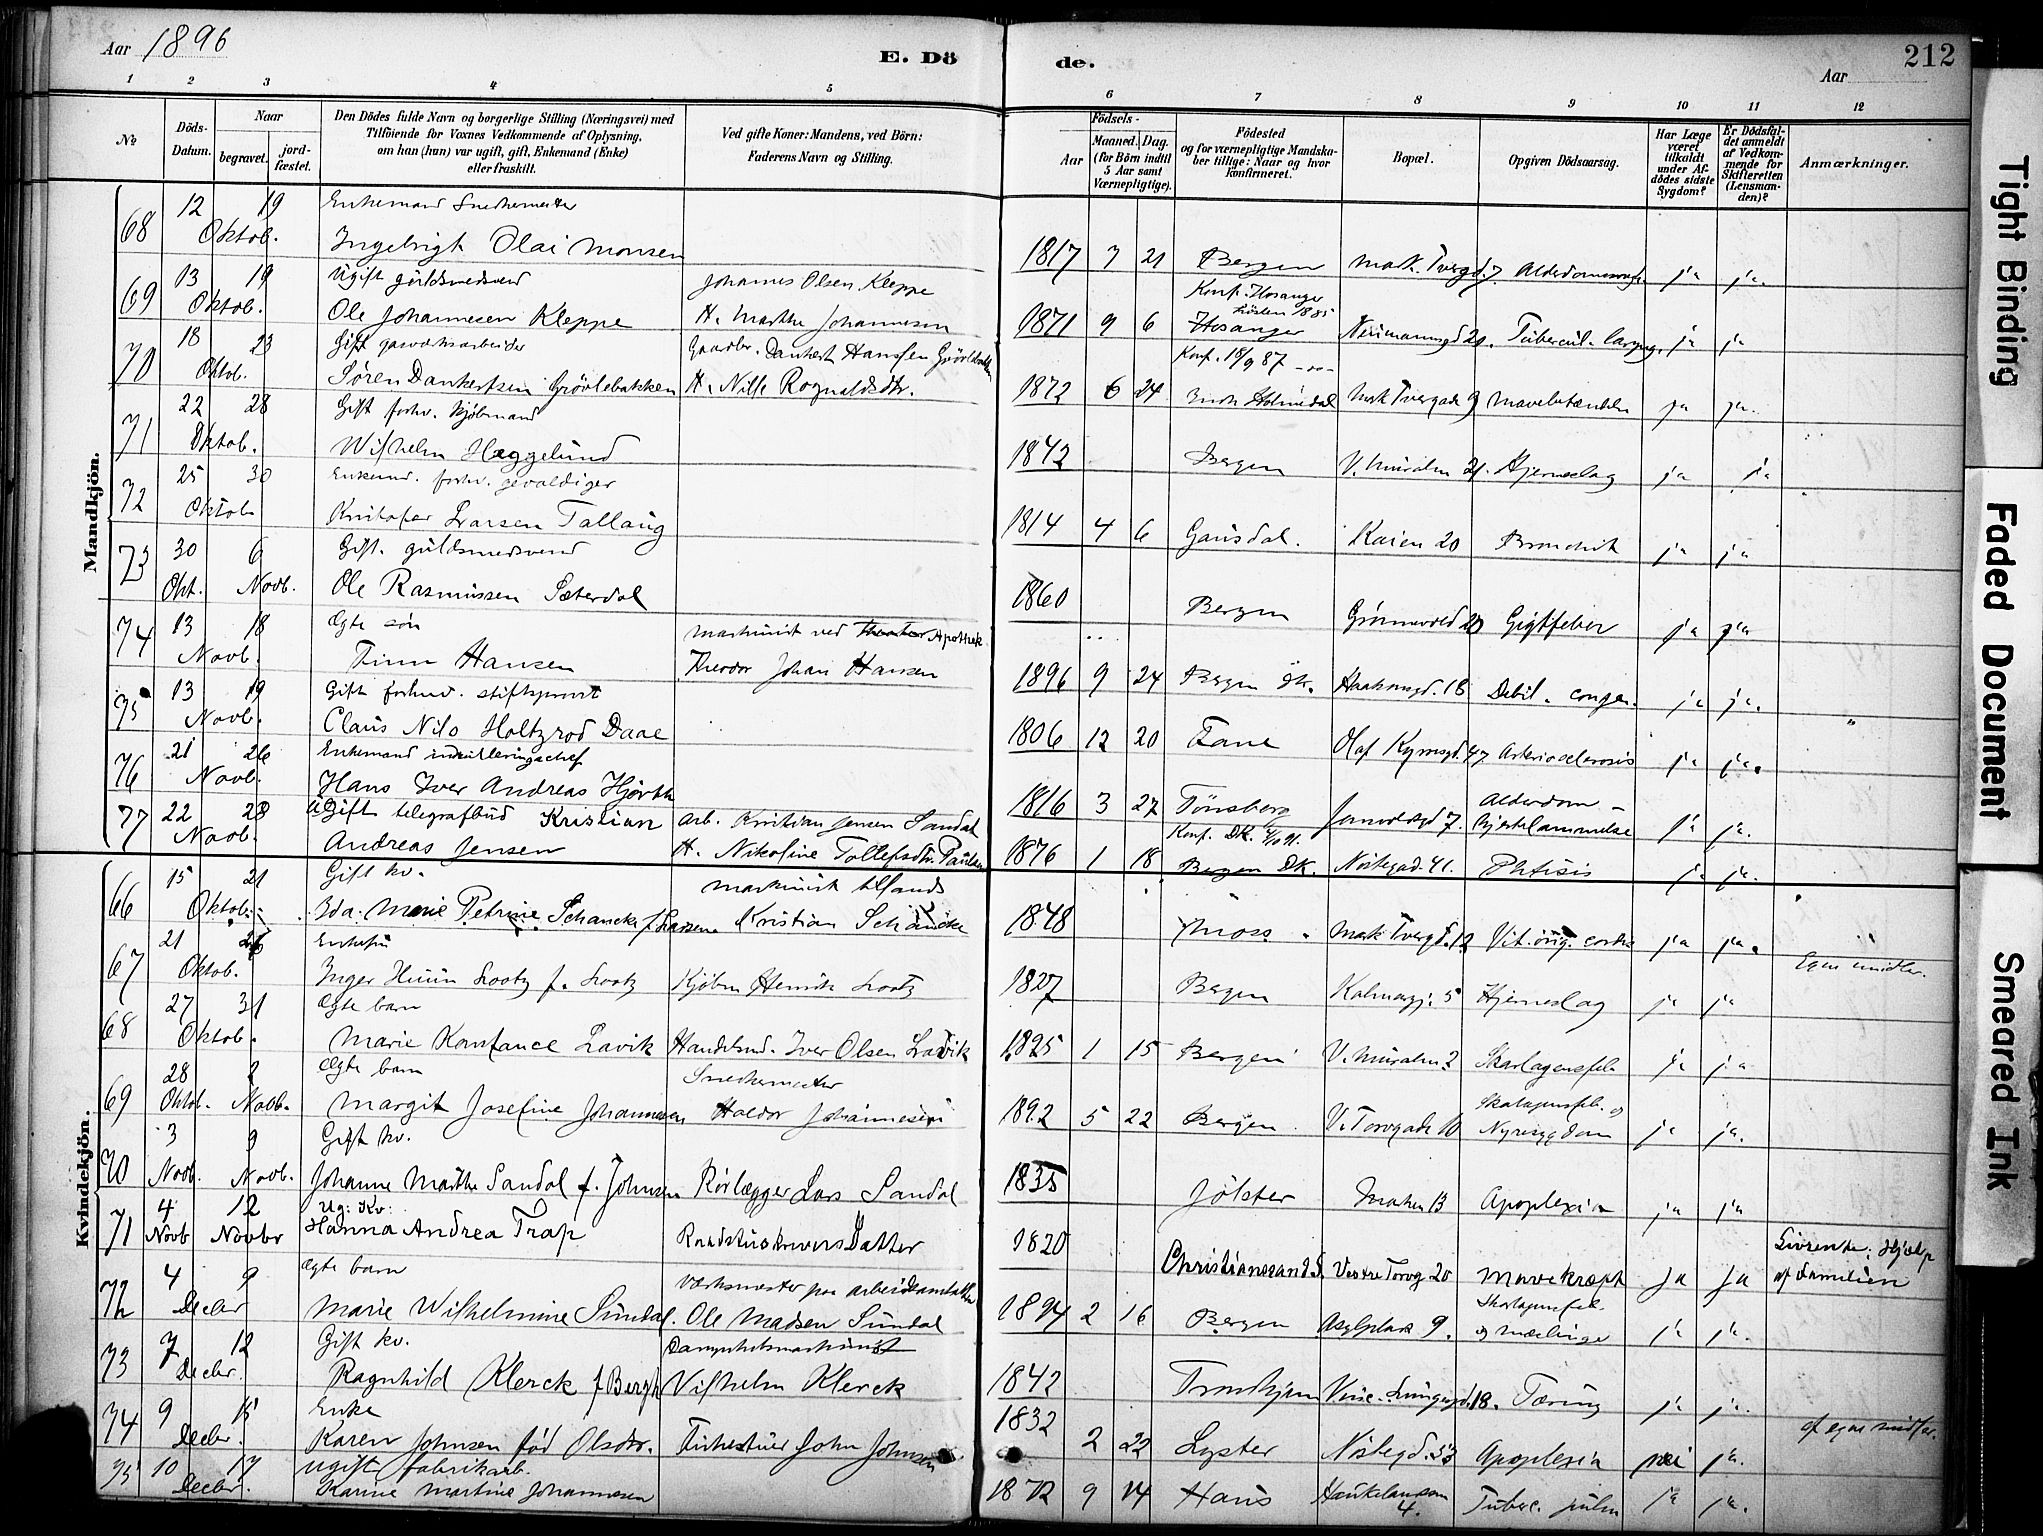 Aar 1896
E. Döde.
Aar
212
1 2 3 4 5 6 7 8 9 10 11 12
№
Döds-Datum.
Naar
begravet.
jord-fæstet.
Den Dödes fulde Navn og borgerlige Stilling (Næringsvei) med
Tilföiende for Voxnes Vedkommende af Oplysning,
om han (hun) var ugift, gift, Enkemand (Enke)
eller fraskilt.
Ved gifte Koner: Mandens, ved Börn:
Faderens Navn og Stilling.
Födsels-
Aar
Maaned. Dag.
(for Börn indtil
5 Aar samt
Værnepligtige).
Födested
og for værnepligtige Mandska-
ber tillige: Naar og hvor
konfirmeret.
Bopæl.
Opgiven Dödsaarsag.
Har Læge
været
tilkaldt
under Af-
dödes sidste
Sygdom?
Er Dödsfal-
det anmeldt
af Vedkom-
mende for
Skifteretten
(Lensman-
den)?
Anmærkninger.
Mandkjön.
68 12 19 Oktob. Enkemand Snedkermester
Ingebrigt Olai Monsen 1817 7 21 Bergen Mark. Tvergd. 7 ja ja.
69 13 19 Oktob. Ugift guldsmedsvend Johannes Olsen Kleppe Konf. Hosanger 1885
Ole Johannesen Kleppe H. Marthe Johannesen 1871 9 6 Hosanger Neumannsgd 20. Tubercul. laryng. ja ja
70 18 23 Oktob. Gift gasværksarbeider Gaardbr. Dankert Hansen Grövlebakken Konf. 18/9 87
Sören Dankertsen Grövlebakken H. Nille Rognaldsdtr. 1872 6 24 Indr Holmedal Mark Tvergade 9 Mavebetændelse ja ja.
71 22 28 Oktob. Gift forhv. kjöbmand
Wilhelm Hæggelund 1842 Bergen V. Muralm 21. Hjerneslag ja ja
72 25 30 Oktob Enkemd. forhv. gevaldiger
Kristofer Larsen Tallaug 1814 4 6 Gausdal. Kaien 20 Bronchit ja ja
73 30 Okt. 6 Novb. Gift. guldsmedsvend
Ole Rasmussen Sæterdal 1860 Bergen Grönnevold 20 Gigtfeber ja ja
74 13 18 Novb. Ægte sön Maskinist ved Theater Apothek
Finn Hansen Theodor Johan Hansen 1896 9 24 Bergen Dk. Haakonsgd. 18 Debil. congen. ja ja.
75 13 19 Novb. Gift forhv. stiftsprovst
Claus Nils Holtzrod Daae 1806 12 20 Fane Olaf Kyrresgd. 47 Arteriosclerosis ja ja.
76 21 26 Novb. Enkemand
Hans Iver Andreas Hjorth 1816 3 27 Tönsberg 7. Alderdom - hjertelammelse ja ja.
77 22 28 Novb. Ugift telegrafbud Kristian Arb. Kristian Jensen Sandal Konf. DK. 4/10 91.
Andreas Jensen H. Nikoline Tollefsdtr. Paulsen 1876 1 18 Bergen DK. Nöstegad. 41. Phtisis ja ja.
Kvindekjön.
66 15 21 Oktob. Gift kv. Maskinist tillands
Ida Marie Petrine Schancke f. Larsen Kristian Schancke 1848 Moss Mark Tvergd. 12 Vit. org. cordis ja ja.
67 21 26 Oktob. Enkefru Egne midler.
Inger Huun Lootz f. Lootz Kjöbm Henrik Lootz 1827 Bergen Kalmargj. 5 Hjerneslag ja ja
68 27 31 Oktob. Ægte barn
Marie Konstance Lavik Handelsmd. Iver Olsen Lavik 1895 1 15 Bergen V. Muralm. 2 Skarlagensfeb. ja ja
69 28 Oktob. 2 Novb. Ægte barn Snedkermester
Margit Josefine Johannesen Haldor Johannesen 1892 5 22 Bergen. V. Torvgade 10 Skarlagensfeb. og Nyresygdom ja ja.
70 3 Novb. 9 Novb. Gift kv.
Johanne Marthe Sandal f. Johnsen Rörlægger Lars Sandal 1835 Jölster Marken 13 Apoplexia ja ja
71 4 Novb 12 Novbr Ug: Kv:
Hanna Andrea Trap Raadstuskrivers Datter 1820 Christianssand S. Vestre Torvg 20 Mavekræft ja ja Livrente: Hjælp
af Familien
72 4 9 Decbr Ægte barn Værksmester paa arbeidsanstalten
Marie Wilhelmine Sundal. Ole Madsen Sundal 1894 2 16 Bergen Asylplads 9. Skarlagensfeb. og mæslinger ja ja.
73 7 12 Decbr. Gift kv. Dampskibsmaskinist
Ragnhild Klerck f Bergh Vilhelm Klerck 1842 Trondhjem 18. Tæring ja ja.
74 9 15 Decbr. Enke af egne midler.
Karen Johnsen föd Olsdtr. John Johnsen 1832 2 22 Lyster Nöstegd. 53 Apoplexia nei ja.
75 10 17 Decbr. Ugift fabrikarb.
Karine Martine Johannesen 1872 9 14 Haus Haukelandsm 4. Tuberc. pulm ja ja.
Tight Binding
Faded Document
Smeared Ink